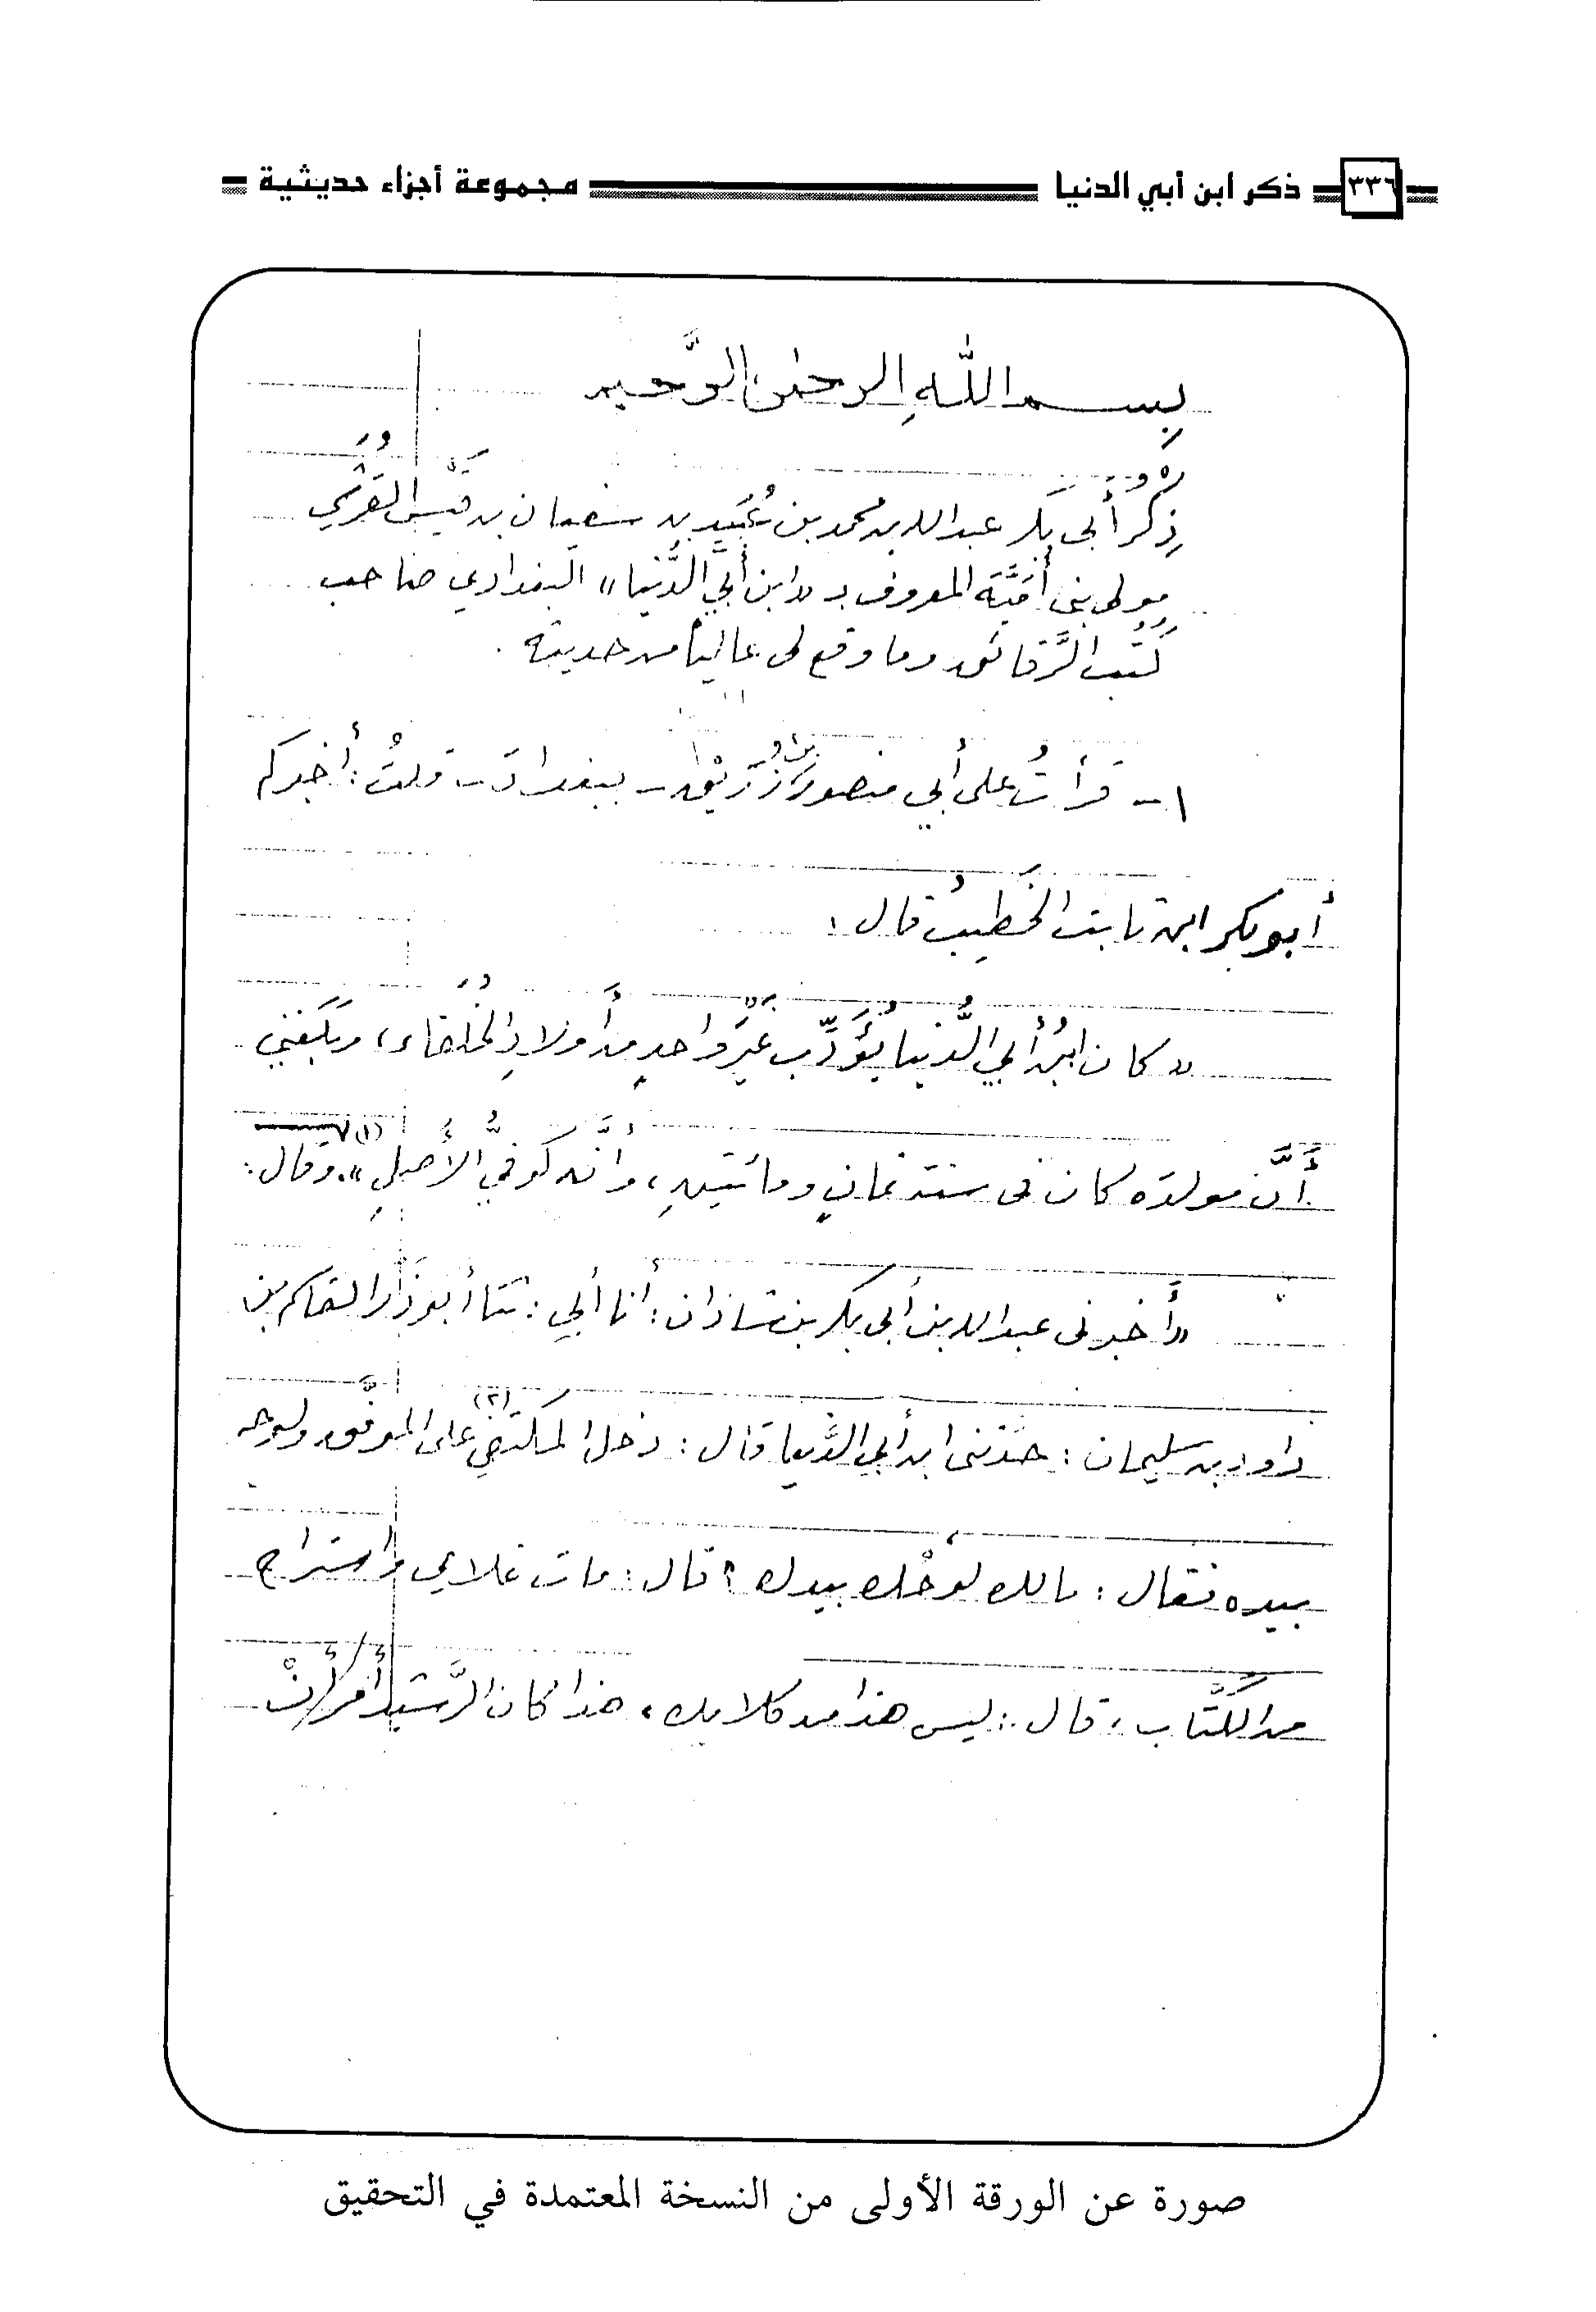 ٣٣٦ ذكر ابن أبي الدنيا مجموعة أجزاء حديثية
بِسم اللَّهِ الرحمٰن الرَّحيم
ذِكْرُ أبي بَكر عبد الله بن محمد بن عُبَيد بن سفيان بن قَيْس القُرَشي
مولى بني أُمَيَّة المعروف بـ «ابن أبي الدُّنيا» البغدادي صاحب
كُتُب الرَّقائق وما وقع لي عالياً من حديثه .
١- قرأتُ على أبي منصور بن زُرَيْق - ببغداد - قلتُ : أخبركم
أبو بكر ابن ثابت الخَطِيبُ قال :
« كان ابنُ أبي الدُّنيا يُؤَدِّب غَيْرَ واحدٍ من أولادِ الخُلفاء ، وبَلَغَني
أَنَّ مولدَه كان في سنة ثمانٍ ومائتينِ ، وأنَّه كُوفيُّ الأَصلِ »(١). وقال :
« أَخبرني عبد الله بن أبي بكر بن شاذان : أنا أبي : ثنا أبو ذَرٍّ القاسم بن
داود بن سليمان : حدَّثني ابن أبي الدُّنيا قال : دخل المكتفي(٢) على الموفَّق ولوحه
بيده فقال : مالك لوحُك بيدك ؟ قال : مات غلامي واستراح
من الكُتَّاب ، قال : ليس هذا من كلامك ، هذا كان الرَّشيد أَمَر أَنْ
صورة عن الورقة الأولى من النسخة المعتمدة في التحقيق